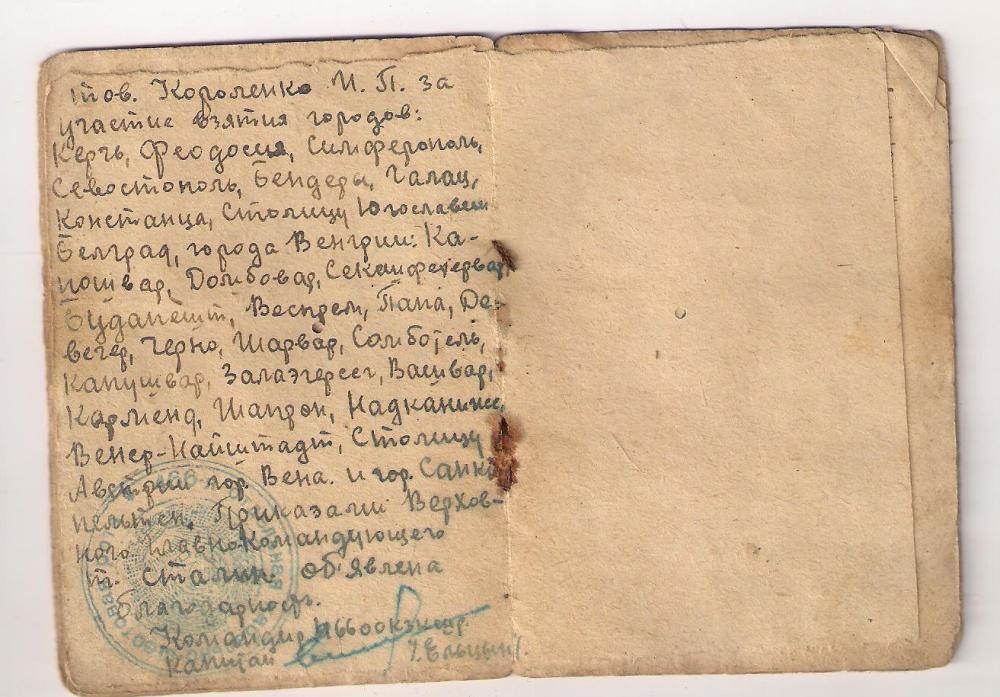 тов. Короленко И. П. за
участие взятия городов:
Керчь, Феодосия, Симферополь,
Севостополь, Бендеры, Галац,
Констанца, Столицу Югославии
Белград, города Венгрии: Ка-
пошвар, Домбовар, Секешфехервар,
Будапешт, Веспрем, Папа, Де-
вечер, Черно, Шарвар, Сомботель,
Капушвар, Залаэгерсег, Вашвар,
Карменд, Шапрон, Надканижа,
Венер-Найштадт, Столицу
Австрии гор. Вена. и гор. Санкт
пельтен. Приказами Верхов-
ного главнокомандующего
т. Сталин об'явлена
благодарность.
Командир 1466
Капитан /Ельцын/.